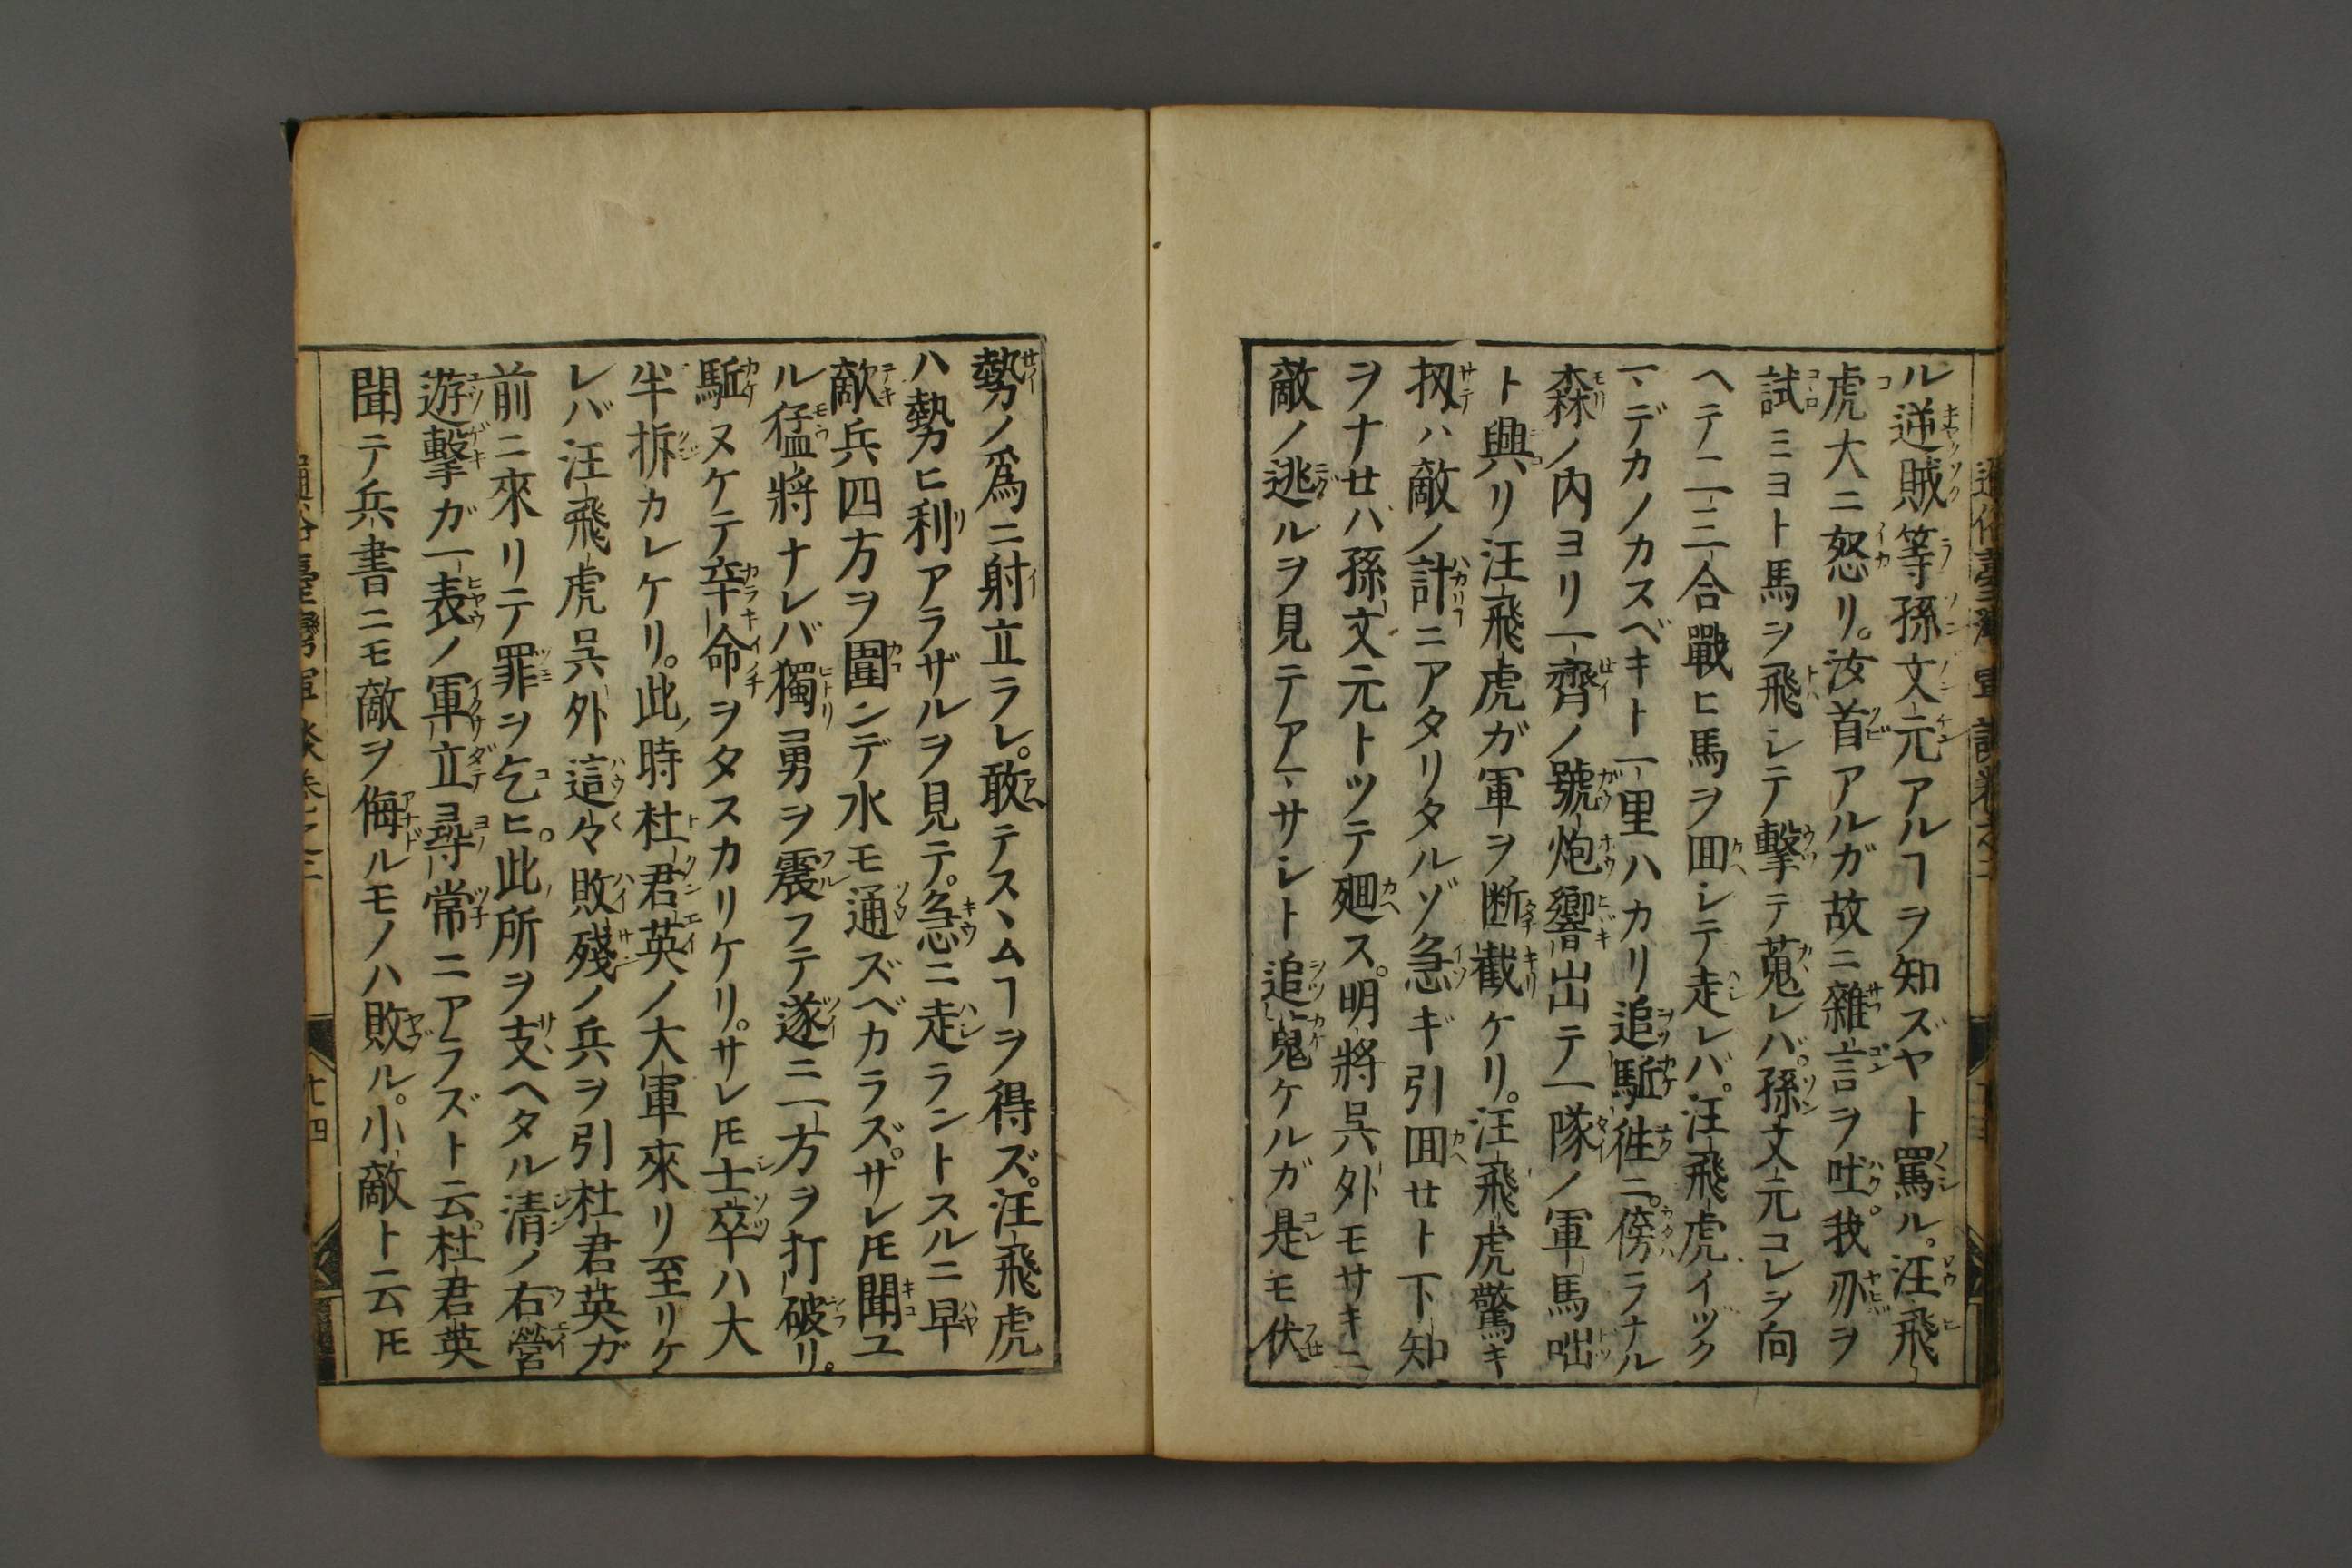 通俗臺灣軍談卷之二
ル逆賊等孫文元アルヿヲ知ズヤト罵ル。汪飛
虎大ニ怒リ。汝首アルガ故ニ雜言ヲ吐。我刃ヲ
試ミヨト馬ヲ飛シテ擊テ蒐レバ。孫文元コレヲ向
ヘテ二三合戰ヒ馬ヲ囬シテ走レバ。汪飛虎イヅク
マデカノカスベキト一里ハカリ追駈徃ニ。傍ラナル
森ノ内ヨリ一齊ノ號炮響出テ一隊ノ軍馬咄
ト興リ汪飛虎ガ軍ヲ断截ケリ。汪飛虎驚キ
扨ハ敵ノ計ニアタリタルゾ急ギ引囬セト下知
ヲナセバ孫文元トツテ廻ス。明將呉外モサキニ
敵ノ逃ルヲ見テアマサシト追蒐ケルガ是モ伏
勢ノ爲ニ射立ラレ。敢テスヽムヿヲ得ズ。汪飛虎
ハ勢カヒ利アラザルヲ見テ。急ニ走ラントスルニ早
敵兵四方ヲ圍ンデ水モ通ズベカラズ。サレ𪜈聞ユ
ル猛將ナレバ獨勇ヲ震フテ遂ニ一方ヲ打破リ。
駈ヌケテ辛命ヲタスカリケリ。サレ𪜈士卒ハ大
半拆カレケリ。此時杜君英ノ大軍來リ至リケ
レバ汪飛虎呉外這々敗殘ノ兵ヲ引杜君英ガ
前ニ來リテ罪ヲ乞ヒ。此所ヲ支ヘタル清ノ右營
遊擊ガ一表ノ軍立尋常ニアラズト云。杜君英
聞テ兵書ニモ敵ヲ侮ルモノハ敗ル。小敵ト云𪜈
通俗臺灣軍談卷之二 十四